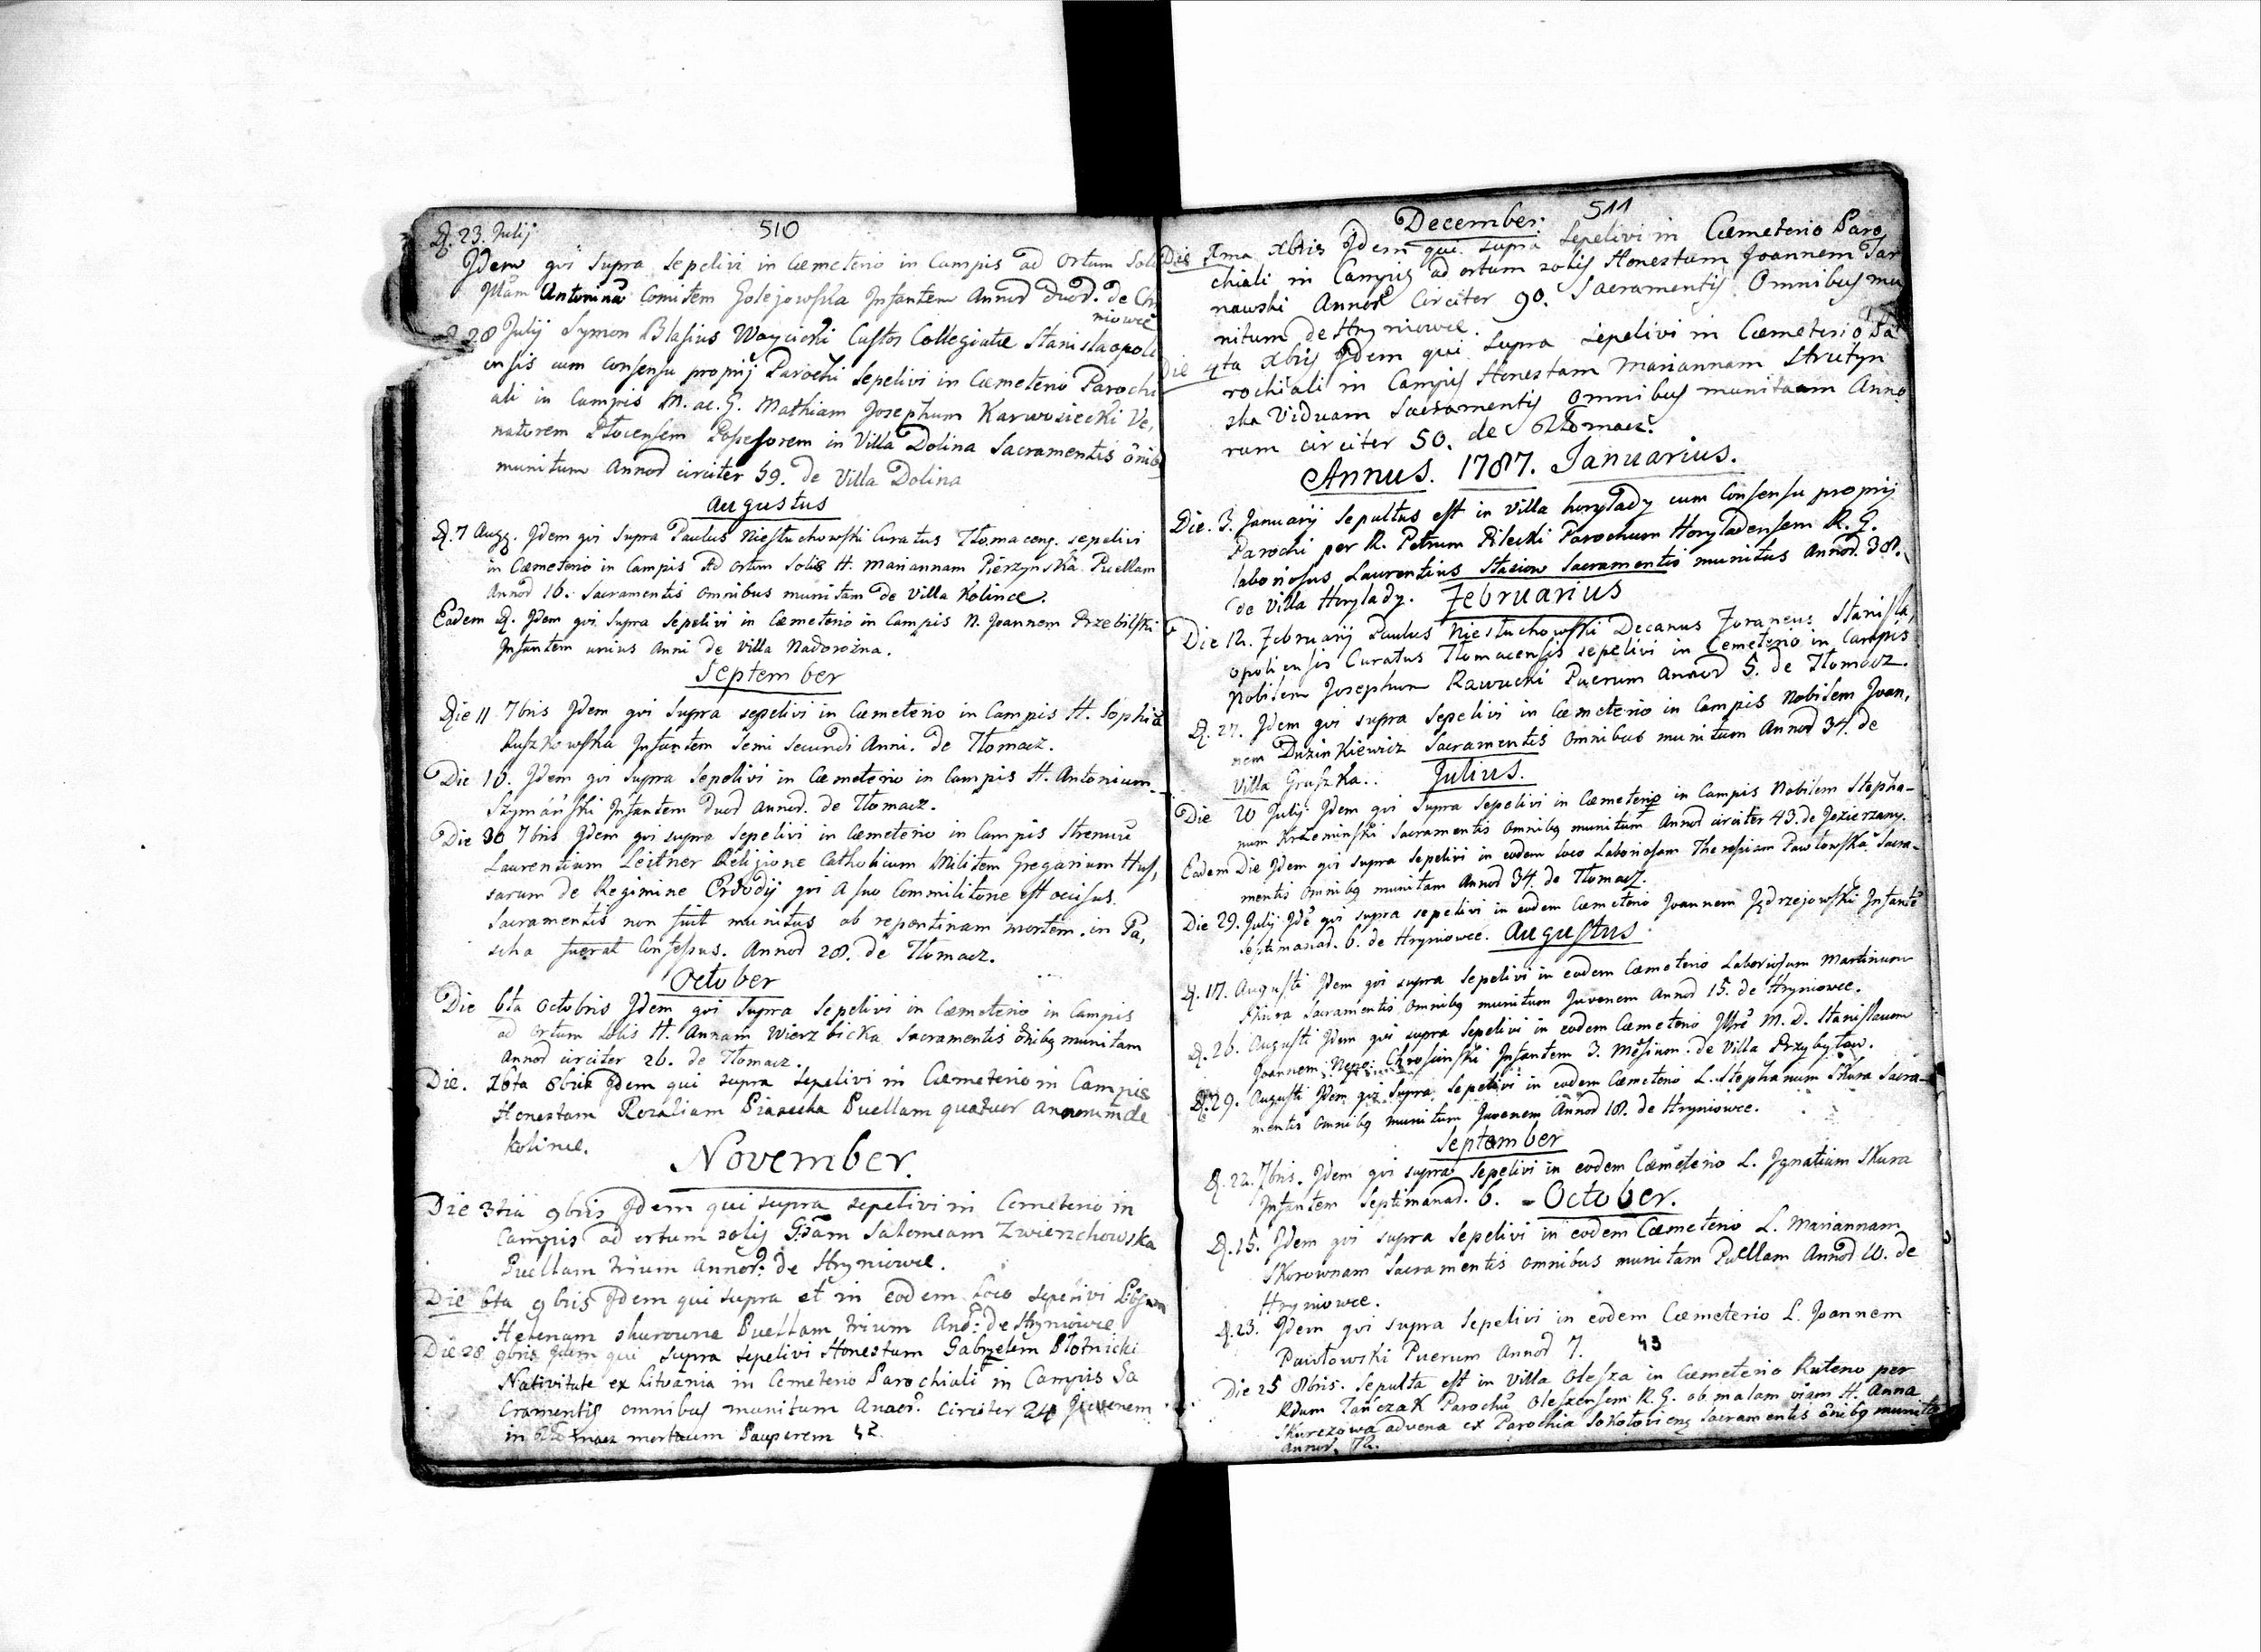 510
D. 23. Julij
Jdem qvi supra sepelivi in Cæmeterio in Campis ad ortum Soli
Antoninã Comitem Golejowska Jnfantem Annoȓ duoȓ. de
niowce
28 Julij Symon Blasius Woycicki Custos Collegiatæ Stanislaopoli
ensis cum consensu proprij Parochi sepelivi in Cæmeterio Parochi
ali in Campis M. ac. G. Mathiam Josephum Karwosiecki Ve,
natorem Plocensem Possessorem in Villa Dolina Sacramentis õnib
munitum Annoȓ circiter 59. de Villa Dolina
Augustus
D. 7 Augg. Jdem qvi supra Paulus Niestuchowski Curatus Tłomaceng. sepelivi
in Cæmeterio in Campis Ad ortum Solis H. Mariannam Pierzynska Puellam
Annoȓ 16. Sacramentis omnibus munitam de Villa Kolince.
Eadem D. Jdem qvi supra sepelivi in Cæmeterio in Campis N. Joannem Przebilski
Jnfantem unius Anni de Villa Nadorożna.
September
Die 11 7bris Jdem qvi supra sepelivi in Cæmeterio in Campis H. Sophiã
Ruszkowska Jnfantem semi secundi Anni. de Tłomacz.
Die 10. Jdem qvi supra sepelivi in Cæmeterio in Campis H. Antonium
Szymański Jnfantem duoȓ annoȓ. de Tłomacz.
Die 30 7bris Jdem qvi supra sepelivi in Cæmeterio in Campis Strenuũ
Laurentium Leitner Religione Catholicum Militem Gregarium Hus,
sarum de Regimine Erdodÿ qvi a suo Commilitone est occisus.
Sacramentis non fuit munitus ob repentinam mortem. in Pa,
scha fuerat Confessus. Annoȓ 28. de Tłomacz.
October
Die 6ta Octobris Jdem qvi supra sepelivi in Cæmeterio in Campis
ad ortum solis H. Annam Wierzbicka Sacramentis õnibg munitam
Annoȓ circiter 26. de Tłomacz.
Die. 8bris Jdem qui supra sepelivi in Cæmeterio in Campis
Honestam Rozaliam Piasecka Puellam quatuor annorum de
Kolince.
November.
Die 3tia 9bris Jdem qui supra sepelivi in Cemeterio in
Campis ad ortum solis Gsam Salomeam Zwierzchowska
Puellam trium Annoȓ: de Hryniowce.
Die 6ta 9bris Jdem qui supra et in eodem Loco sepelivi
Helenam skurowna Puellam trium Anoȓ: de Hryniowce
Die 28 9bris Jdem qui supra sepelivi Honestum Gabryelem Błotnicki
Nativitate ex Lituania in Cemeterio Parochiali in Campis Sa
cramentis omnibus munitum Annoȓ: circiter 24 Juvenem
in Tłomacz mortuum Pauperem 42
511
December.
Die Jma Xbris Jdem qui supra sepelivi in Cæmeterio Paro
chiali in Campis ad ortum solis Honestum Joannem Tar
nawski Annoȓ Circiter 90. Sacramentis Omnibus mu
nitum de Hryniowce.
Die 4ta Xbris Jdem qui supra sepelivi in Cæmeterio Pa
rochiali in Campis Honestam Mariannam Strutyn
ska Viduam Sacramentis omnibus munitam Anno
rum circiter 50. de Tłomacz.
Annus. 1787. Januarius.
Die. 3. Januarij Sepultus est in Villa horylady cum Consensu proprij
Parochi per R. Petrum Pilecki Parochum Horyladensem R. G.
laboriosus Laurentius Stasiow Sacramentis munitus Annoȓ. 38.
de Villa Horylady. Februarius
Die 12. Februarij Paulus Niestuchowski Decanus Foraneus Stanisla,
opoliensis Curatus Tłomacensis sepelivi in Cemeterio in Campis
Nobilem Josephum Rawucki Puerum Annoȓ 5. de Tłomacz.
D. 27. Jdem qvi supra sepelivi in Cæmeterio in Campis Nobilem Joan,
nem Duzinkiewicz Sacramentis Omnibus munitum Annoȓ 34. de
Villa Gruszka.. Julius.
Die 20 Julij Jdem qvi supra sepelivi in Cæmeterio in Campis Nobilem Stepha-
num Krzeminski Sacramentis Omnibg munitum Annoȓ circiter 43. de Jezierzany.
Eadem Die Jdem qvi supra sepelivi in eodem loco Laboriosam Theresiam Pawłowską Sacra-
mentis omnibg munitam Annoȓ 34. de Tłomacz.
Die 29. Julij Jdẽ qvi supra sepelivi in eodem Cæmeterio Joannem Jędrzejowski Jnfantẽ
septimanaȓ. 6. de Hryniowce. Augustus
D. 17. Augusti Jdem qvi supra sepelivi in eodem Cæmeterio Laboriosum Martinum
Skura Sacramentis Omnibg munitum Juvenem Annoȓ 15. de Hryniowce.
D. 26. Augusti Jdem qvi supra sepelivi in eodem Cæmeterio Jllrẽ M. D. Stanislaum
Joannem Nepo: Chrosinski Jnfantem 3. Mẽsium. de Villa Przybyłow.
D. 29. Augusti Jdem qvi Supra sepelivi in eodem Cæmeterio L. Stephanum Skura Sacra-
mentis omnibg munitum Juvenem Annoȓ 18. de Hryniowce.
September
D. 22. 7bris. Jdem qvi supra sepelivi in eodem Cæmeterio L. Jgnatium Skura
Jnfantem Septimanaȓ. 6. - October.
D. 15. Jdem qvi supra sepelivi in eodem Cæmeterio L. Mariannam
Skorownam Sacramentis omnibus munitam Puellam Annoȓ 10. de
Hryniowce.
D. 23. Jdem qvi supra sepelivi in eodem Cæmeterio L. Joannem
Pawłowski Puerum Annoȓ 7. 43
Die 25 8bris. Sepulta est in Villa Olesza in Cæmeterio Ruteno per
Rdum Tańczak Parochũ Oleszensem R. G. ob malam viam H. Anna
Skurczowa advena ex Parochia Sokołovieng Sacramentis õnibg munita
Annoȓ. 72.